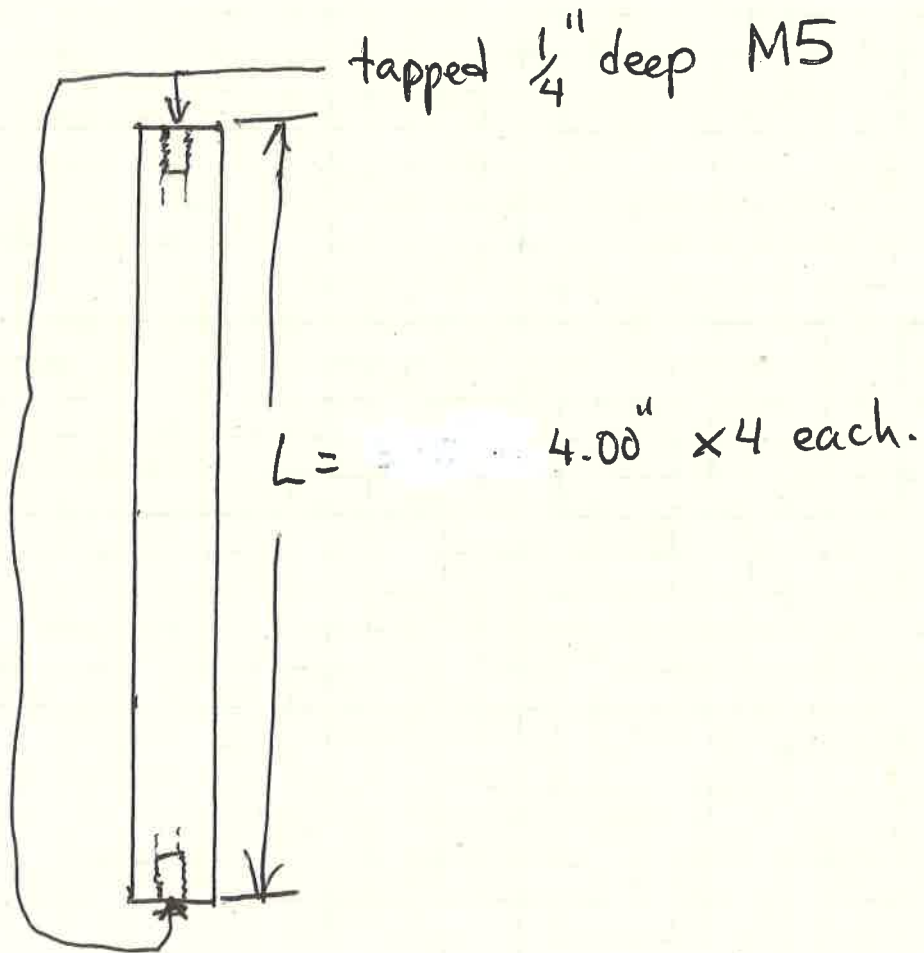 tapped 1/4" deep M5
L= 4.00" ×4 each.